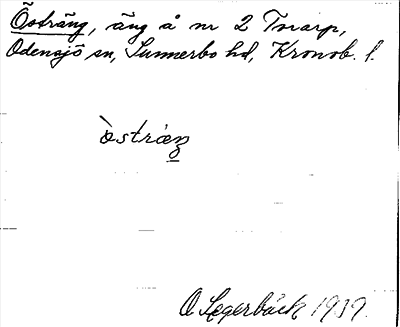 Östräng, äng å nr 2 Torarp,
Odensjö sn, Sunnerbo hd, Kronob. l.
òstræŋ
O Legerbäck 1937.